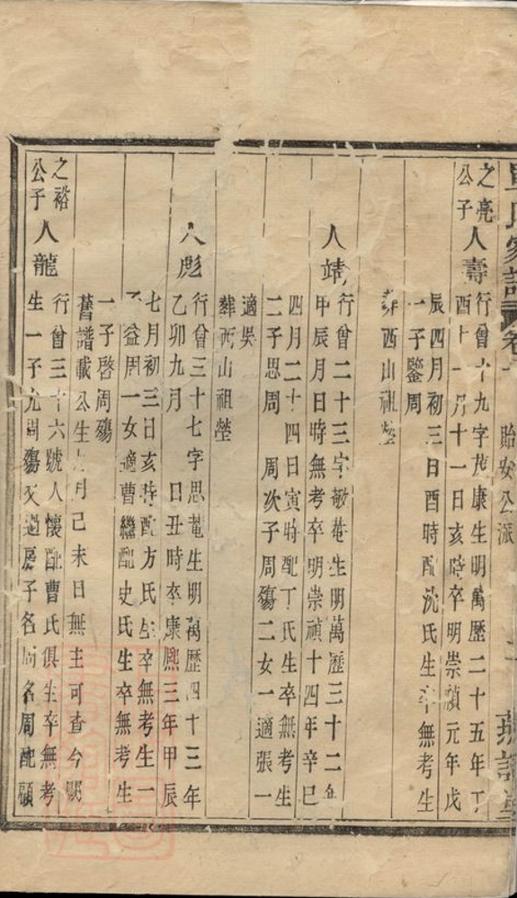 氏家譜 卷 貽安公派
之亮公子 人壽 行曾十九字茂康生明萬歷二十五年丁
酉十一月十一日亥時卒明崇禎元年戊
辰四月初三日酉時配沈氏生卒無考生
一子鑒周
葬西山祖塋
人靖 行曾二十三字敏菴生明萬歷三十二年
甲辰月日時無考卒明崇禎十四年辛巳
四月二十四日寅時配丁氏生卒無考生
二子思周 周次子周殤二女一適張一
適吳
葬西山祖塋
人彪 行曾三十七字思菴生明萬歷四十三年
乙卯九月 日丑時卒康熙三年甲辰
七月初三日亥時配方氏生卒無考生一
子益周一女適曹繼配史氏生卒無考生
一子啓周殤
舊譜載公生 月己未日無主可查今闕
之裕公子 人龍 行曾三十六號人懷配曹氏俱生卒無考
生一子 周殤又過房子名周配顧